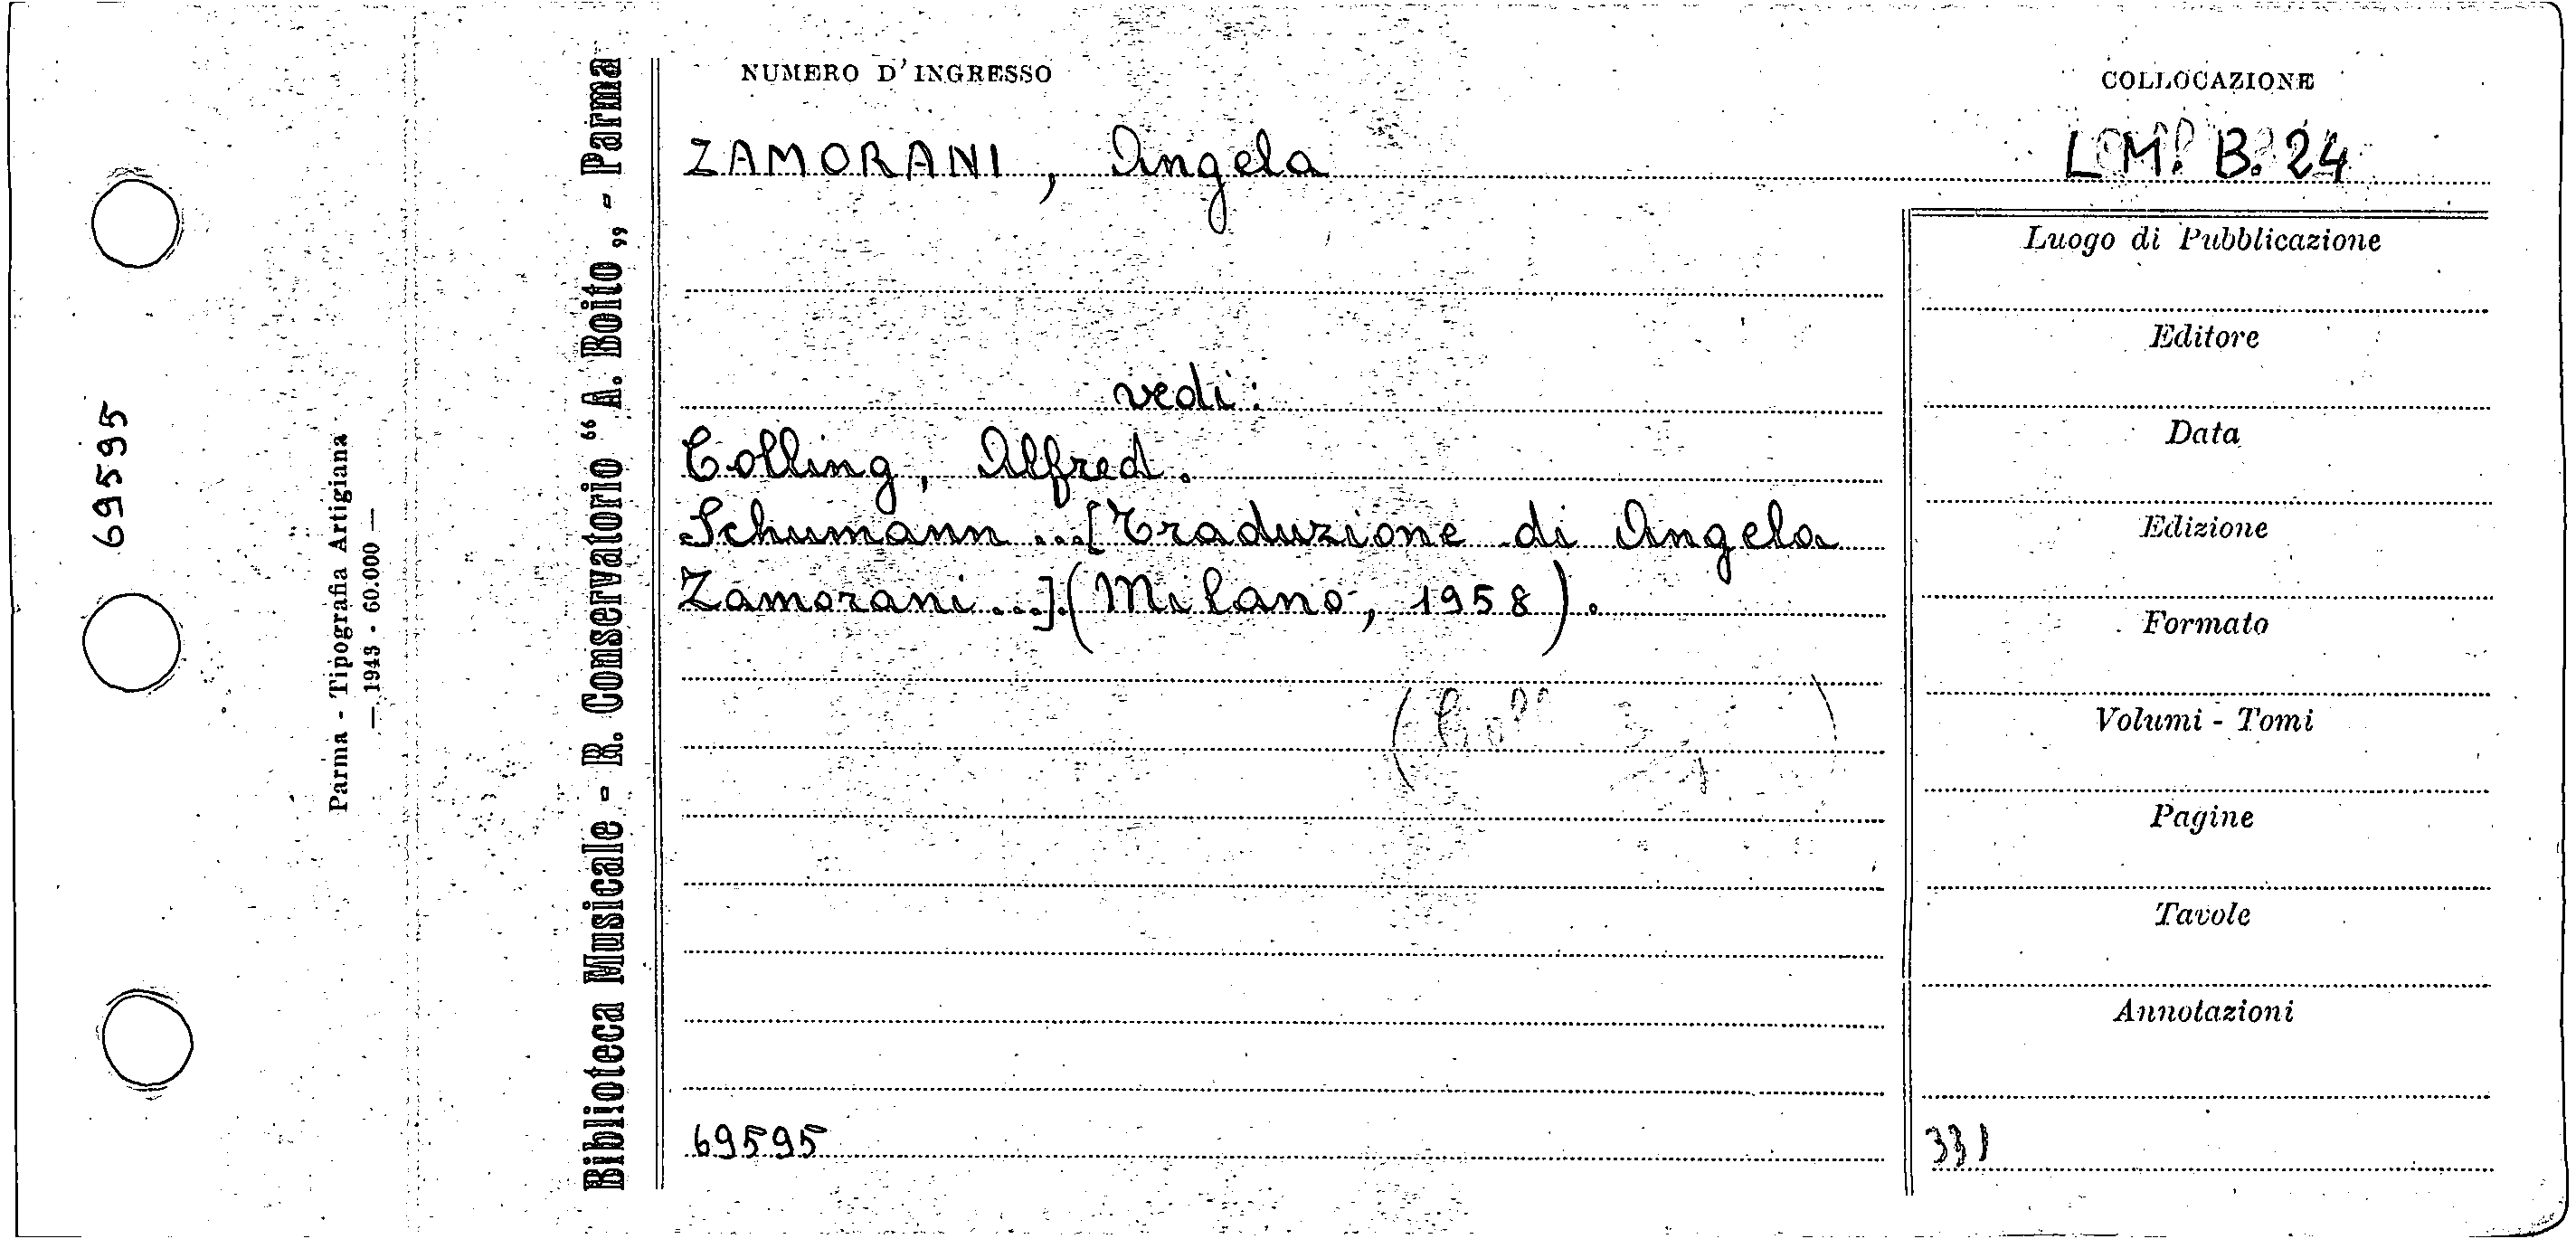 NUMERO D'INGRESSO
COLLOCAZIONE
ZAMORANI, Angela
L.M. B. 24
vedi:
Colling, Alfred.
Schumann ...[Traduzione di Angela
Zamorani...].(Milano, 1958).
69595
Luogo di Pubblicazione
Editore
Data
Edizione
Formato
Volumi - Tomi
Pagine
Tavole
Annotazioni
331
Biblioteca Musicale - R. Conservatorio "A. Boito" - Parma
Parma - Tipografia Artigiana
— 1943 - 60.000 —
69595